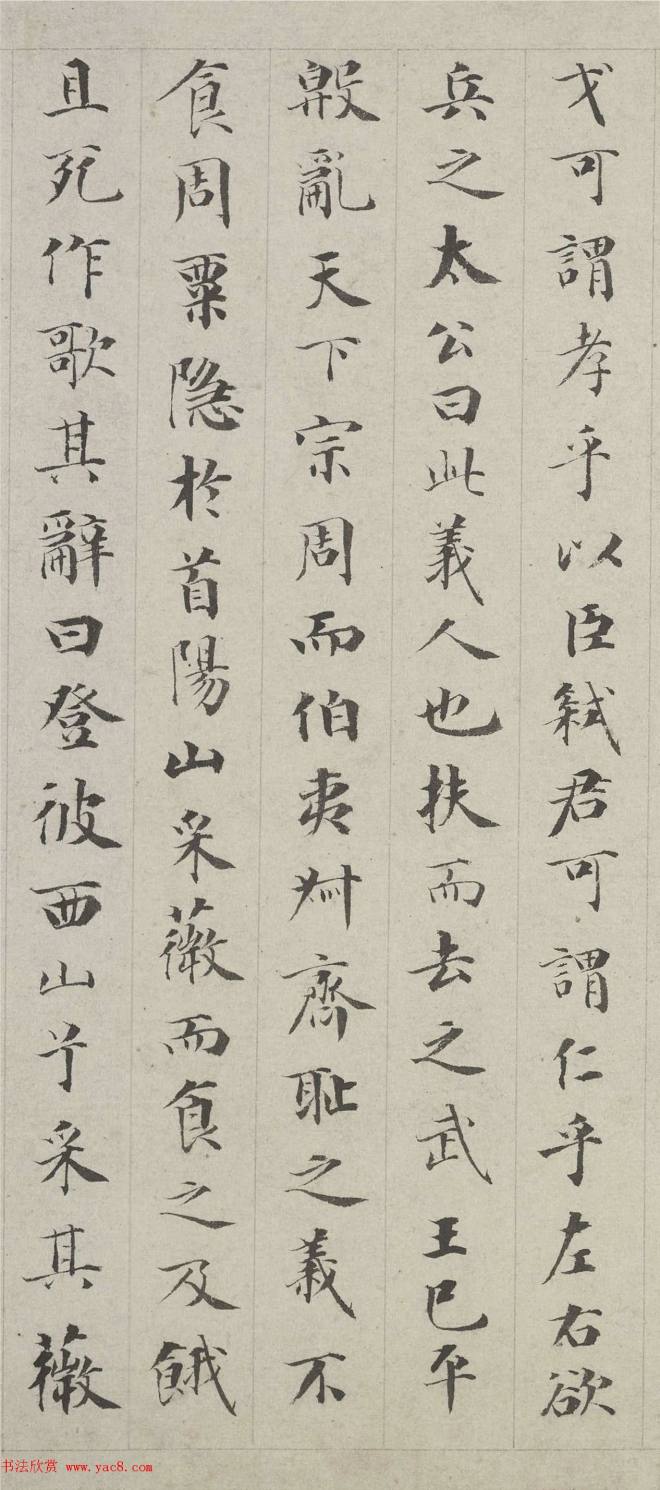 戈可謂孝乎以臣弒君可謂仁乎左右欲
兵之太公曰此義人也扶而去之武王已平
殷亂天下宗周而伯夷叔齊耻之義不
食周粟隐於首陽山采薇而食之及餓
且死作歌其辭曰登彼西山兮采其薇
书法欣赏 www.yac8.com